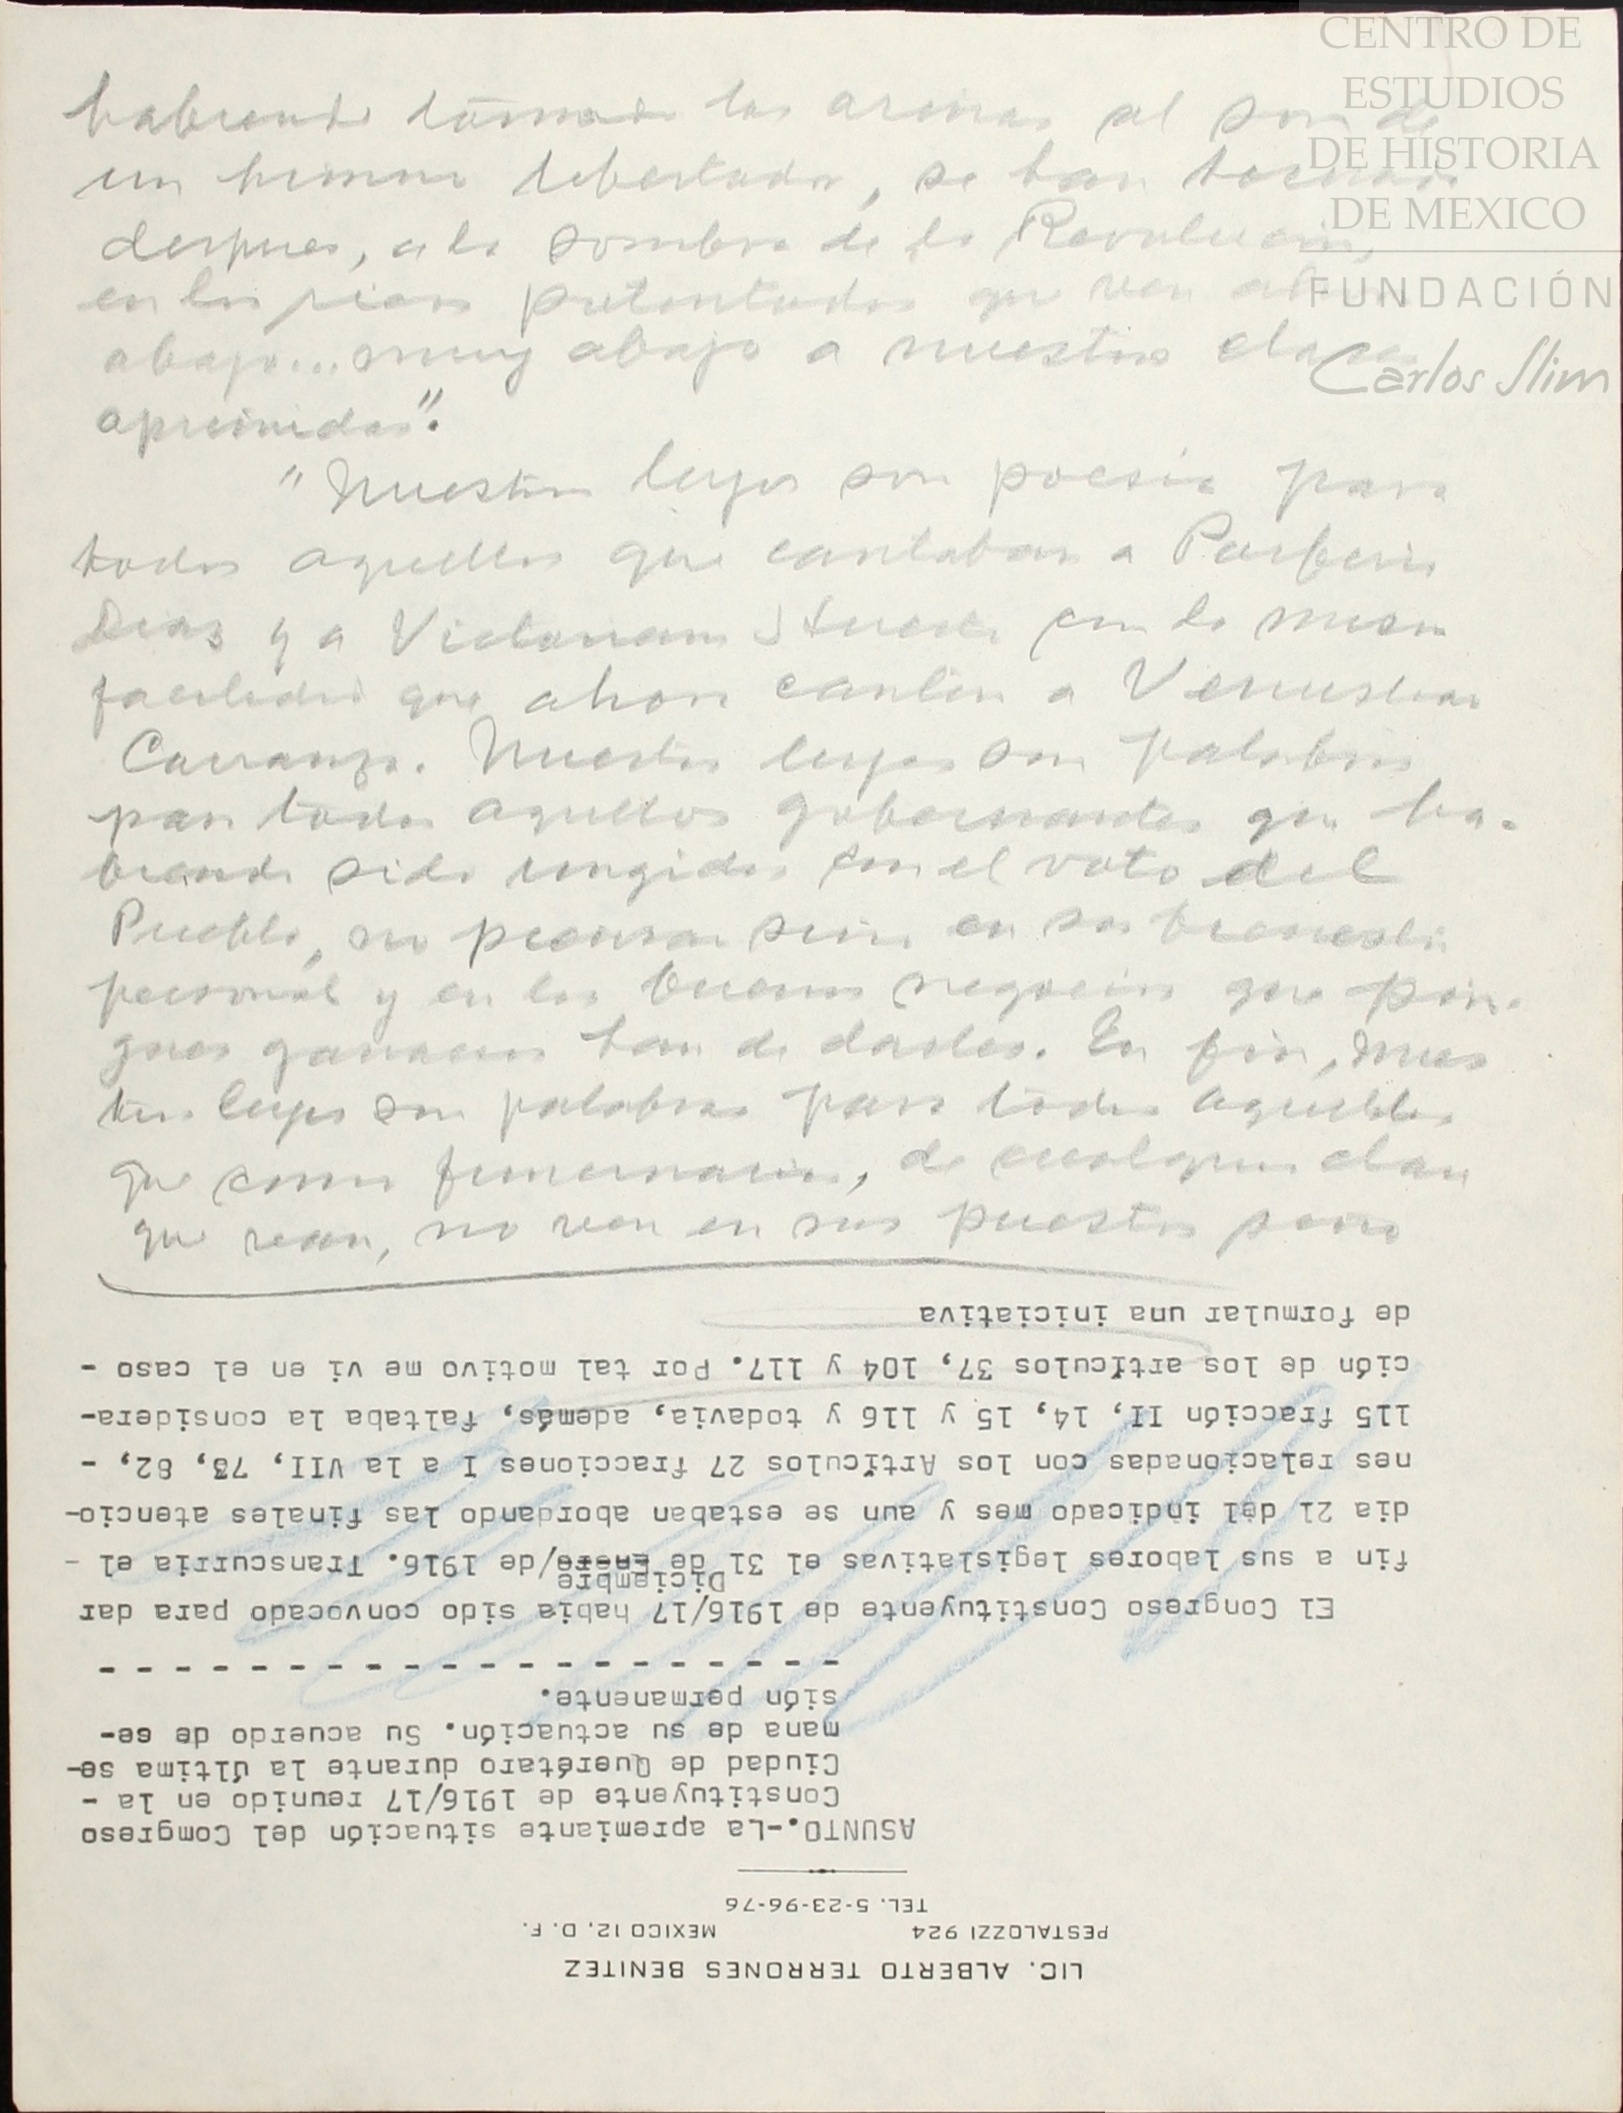 habiendo tomado las armas al son de
un himno libertador, se han tornado
despues, a la sombra de la Revolucion,
en los ricos potentados que ven ahora
abajo... muy abajo a nuestras clases
oprimidas".
"Nuestras leyes son poesia para
todos aquellos que cantaban a Porfirio
Dias y a Victoriano Huerta con la misma
facilidad que ahora cantan a Venustiano
Carranza. Nuestras leyes son palabras
para todos aquellos gobernantes que ha-
biendo sido ungidos con el voto del
Pueblo, no piensan sino en su bienestar
personal y en los buenos negocios que pin-
gues ganancias han de darles. En fin, nues
tras leyes son palabras para todos aquellos
que como funcionarios, de cualquier clase
que sean, no ven en sus puestos sino
LIC. ALBERTO TERRONES BENITEZ
PESTALOZZI 924 MEXICO 12, D. F.
TEL. 5-23-96-76
ASUNTO.-La apremiante situación del Comgreso
Constituyente de 1916/17 reunido en la -
Ciudad de Querétaro durante la última se-
mana de su actuación. Su acuerdo de se-
sión permanente.
- - - - - - - - - - - - - - - - - - - -
El Congreso Constituyente de 1916/17 había sido convocado para dar
Diciembre
fin a sus labores legislativas el 31 de Enero/de 1916. Transcurría el -
dia 21 del indicado mes y aun se estaban abordando las finales atencio-
nes relacionadas con los Artículos 27 fracciones I a la VII, 73, 82, -
115 fracción II, 14, 15 y 116 y todavia, además, faltaba la considera-
ción de los artículos 37, 104 y 117. Por tal motivo me vi en el caso -
de formular una iniciativa
CENTRO DE
ESTUDIOS
DE HISTORIA
DE MEXICO
FUNDACIÓN
Carlos Slim